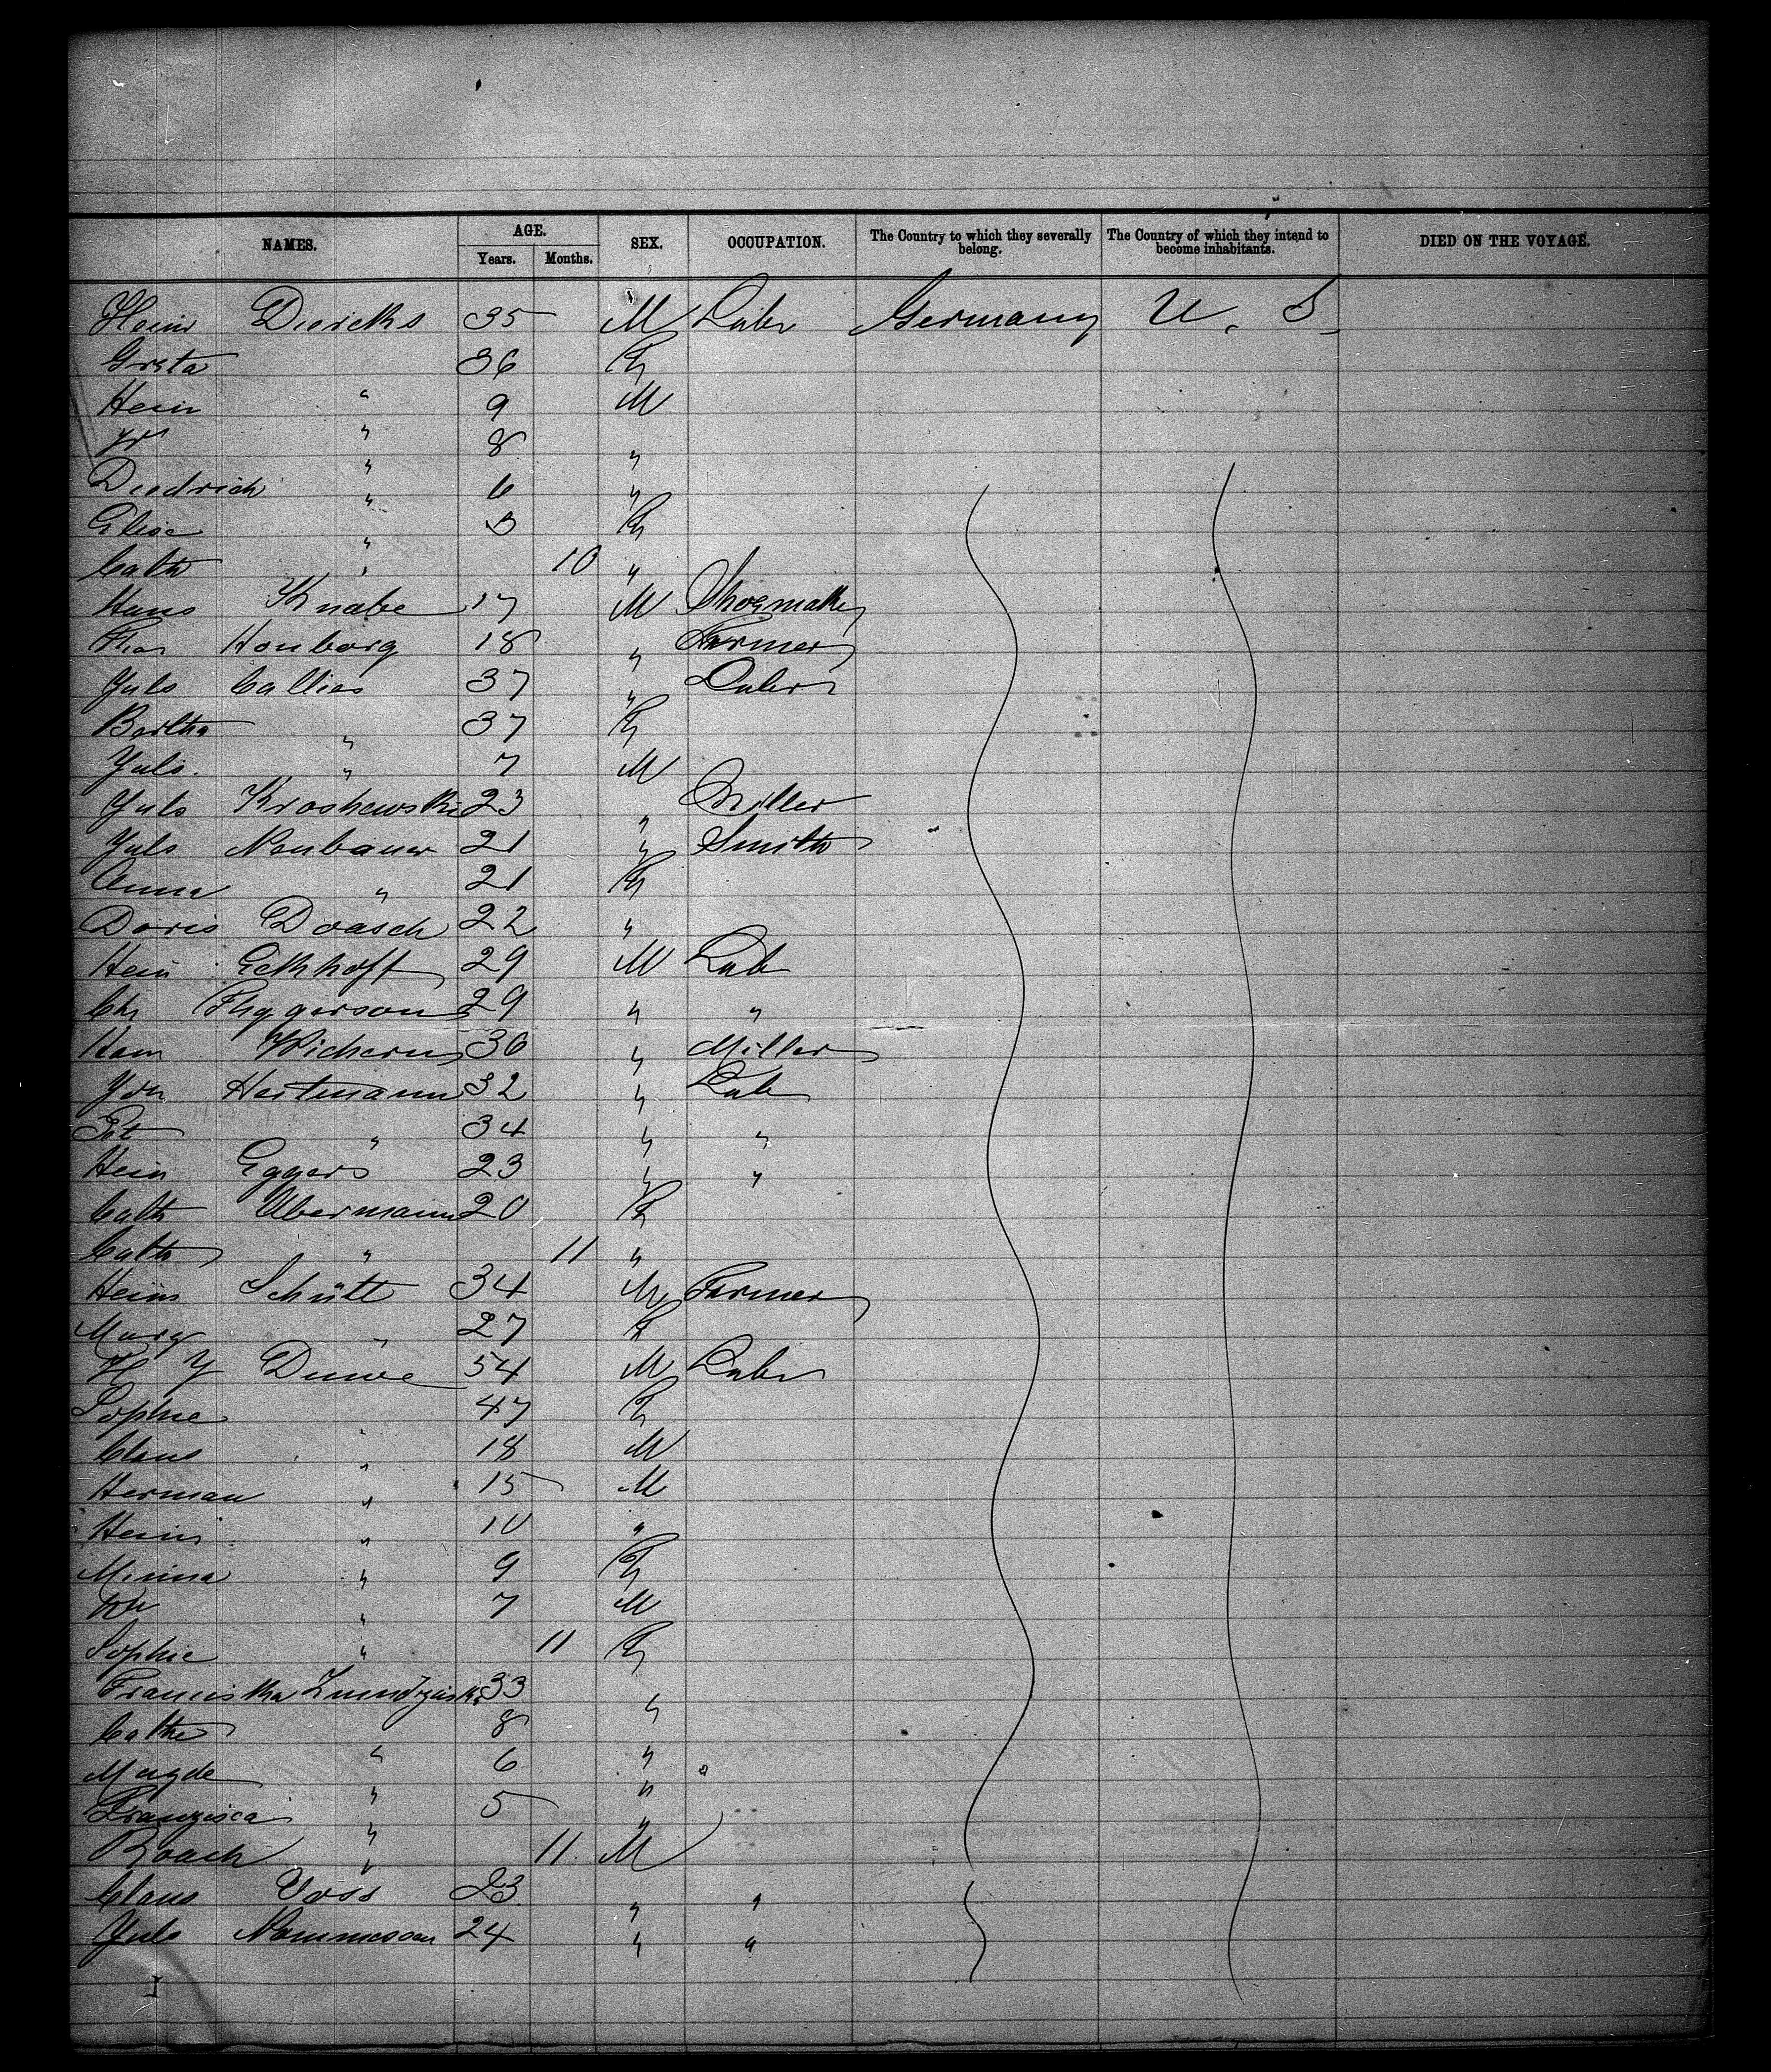 NAMES. AGE. SEX. OCCUPATION. The Country to which they severally belong. The Country of which they intend to become inhabitants. DIED ON THE VOYAGE.
Years. Months.
Heinr Diercks 35 M Labr Germany U. S.
Greta 36 F
Hein " 9 M
" 8 "
Diedrich " 6 "
Elise " 3 F
Cath " 10 "
Hans Knabe 17 M Shoemaker
Honborg 18 " Farmer
Juls Callies 37 " Labr
Bertha " 37 F
Juls. " 7 M
Juls Kroshewski 23 " Miller
Juls Neubauer 21 " Smith
Anna " 21 F
Doris Doasch 22 "
Hein Eckhoff 29 M Lab
Chr Thygerson 29 " "
Ham Wichern 36 " Miller
Joh Hertmann 32 " Lab
Pet " 34 " "
Hein Eggers 23 " "
Cath Abermann 20 F
Cath " 11 "
Heinr Schütt 34 M Farmer
Marg " 27 F
H J Duwe 54 M Labr
Sophie " 47 F
Claus " 18 M
Herman " 15 M
Heinr " 10 "
Minna " 9 F
" 7 M
Sophie " 11 F
Franciska 33 "
Cathe " 8 "
Magde " 6 "
Franzisca " 5 "
Roach " 11 M
Claus Voss 23 " "
Juls Nommesson 24 " "